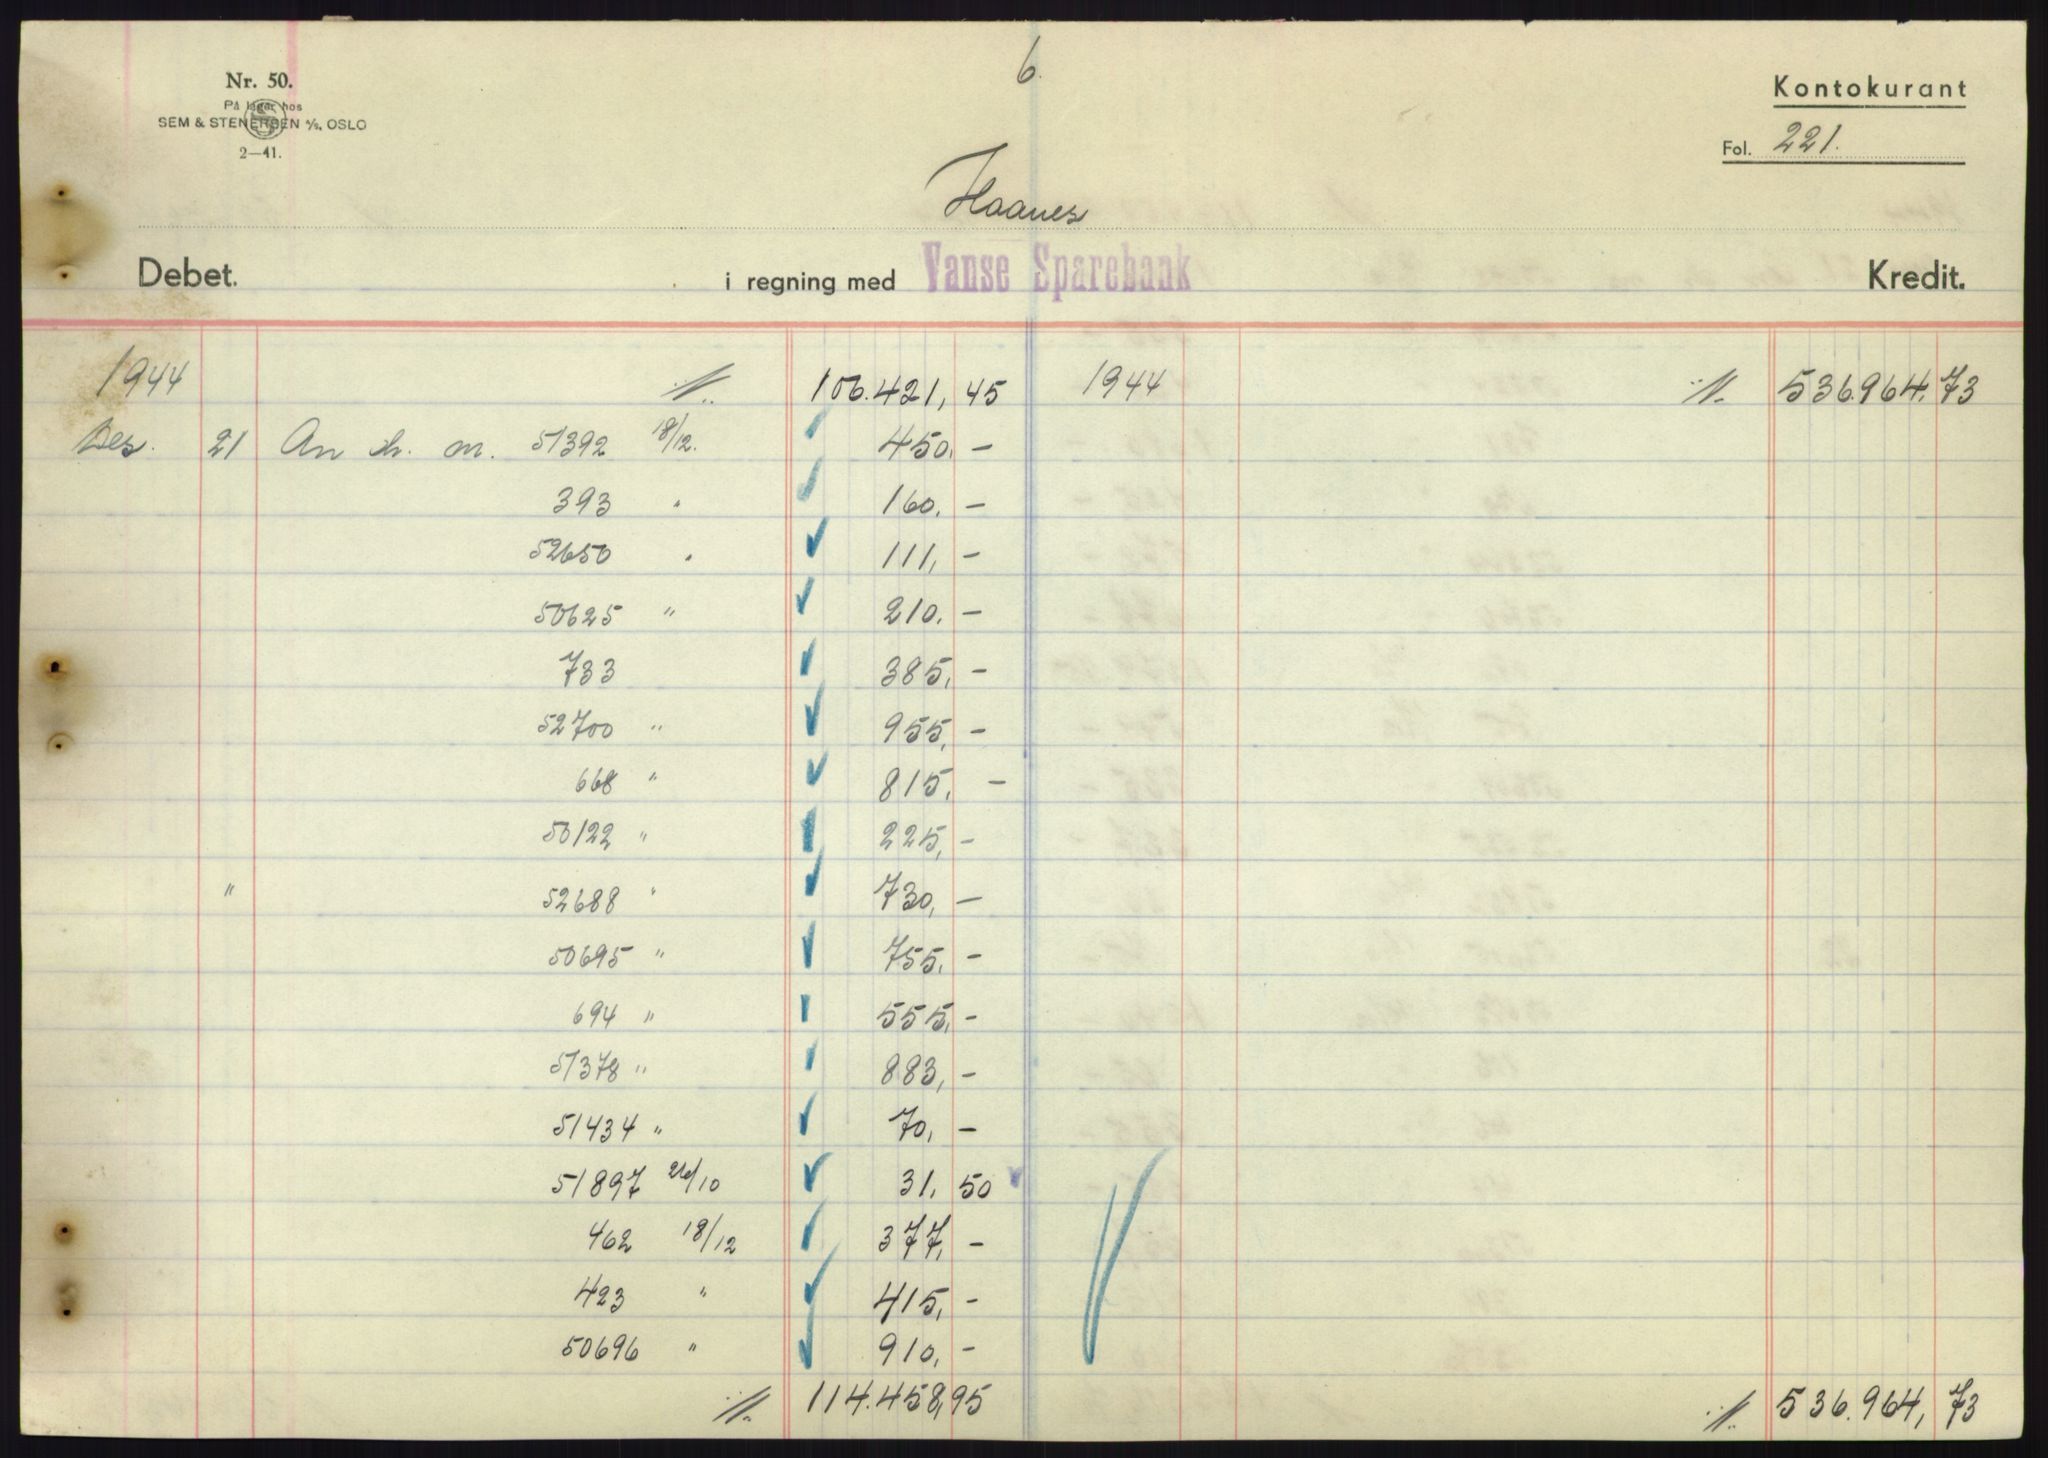 6.
Nr. 50.
På lager hos
SEM & STENERSEN A/S, OSLO
2—41.
Kontokurant
Fol. 221.
Haanes
Debet. i regning med Vanse Sparebank Kredit.
1944 106.421, 45 1944 536.964. 73
Des. 21 An ch. m. 51392 18/12. 450. –
393 " 160. –
52650 " 111, –
50625 " 210. –
733 385, –
52700 " 955, –
668 " 815, –
50122 " 225, –
" 52688 " 730, –
50695 " 755, –
694 " 555, –
51378 " 883, –
51434 " 70, –
51897 26/10 31, 50
462 18/12 377, –
423 " 415, –
50696 " 910, –
114.458,95 536.964, 73